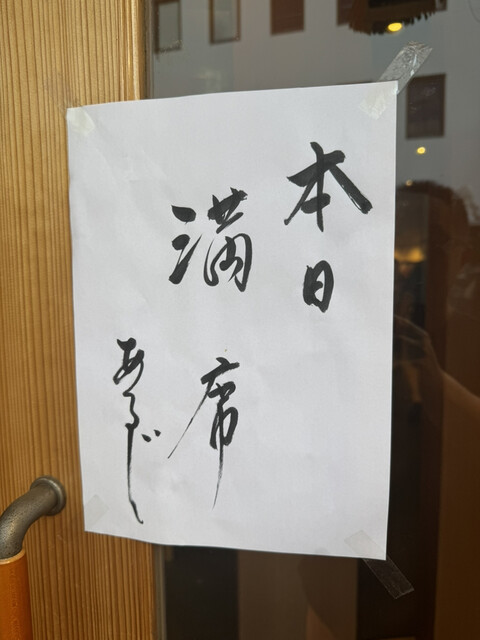 本日
満席
あるじ